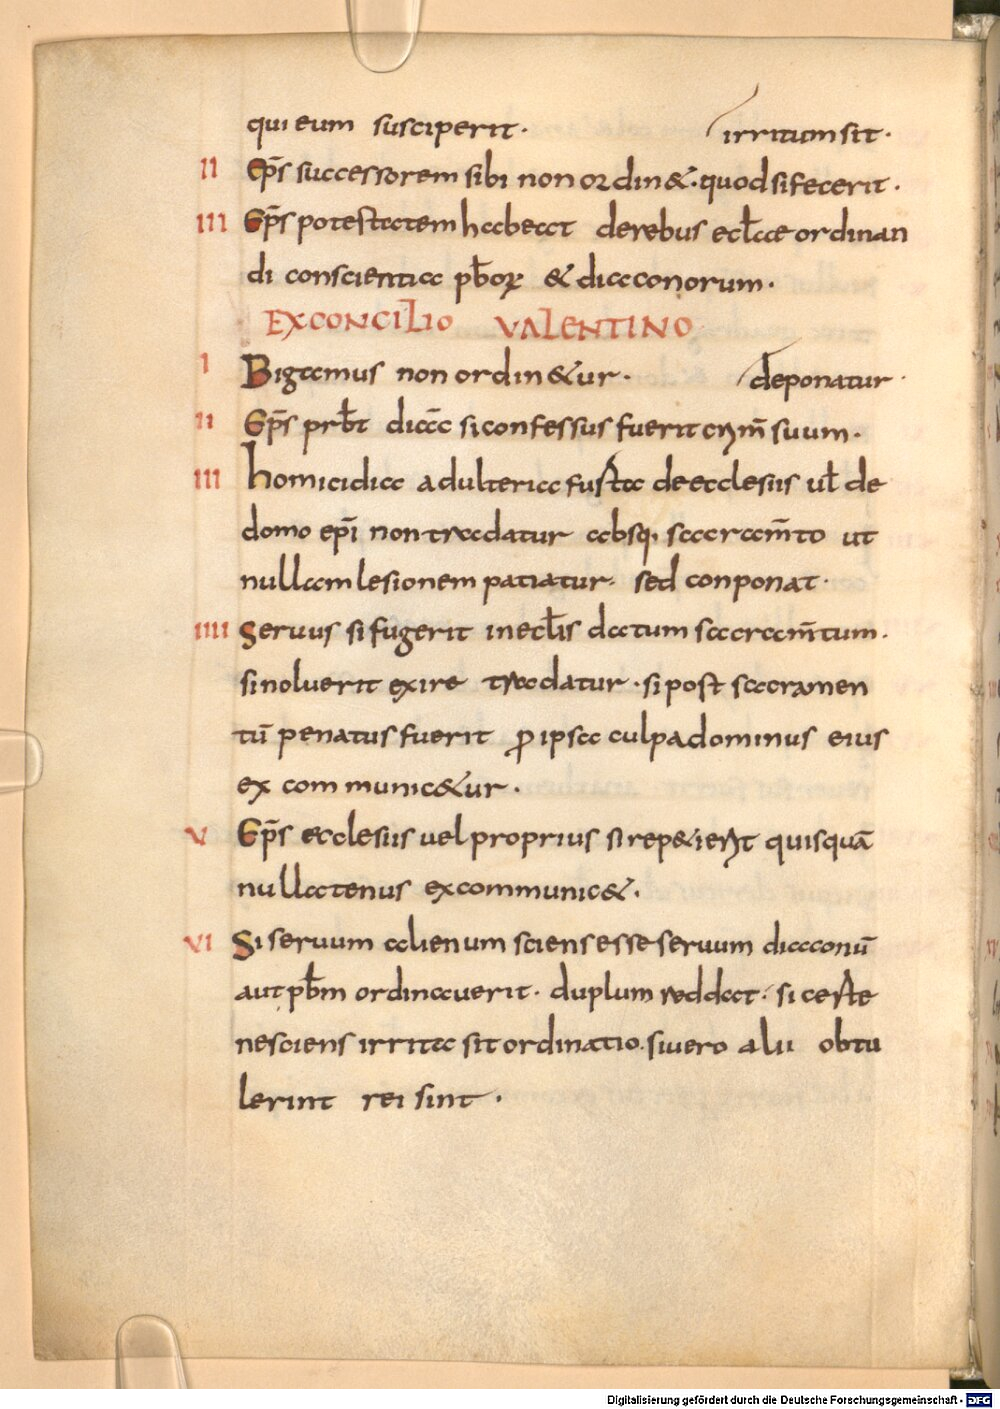 qui eum susciperit· irritum sit·
II Ep̄s successorem sibi non ordin&·quod si fecerit·
III Ep̄s potestatem habeat de rebus ecl̄ae ordinan
di conscientia pb̄oꝝ & diaconorum·
EX CONCILIO VALENTINO
I Bigamus non ordin&ur· deponatur·
II Ep̄s prb̄t diac̄ si confessus fuerit crim̄ suum·
III homicidia adulteria fusta de ecclesiis ul̄ de
domo ep̄i non tradatur absq, sacram̄to ut
nullam lesionem patiatur· sed conponat·
IIII Seruus si fugerit in ecl̄is datum sacram̄tum·
si noluerit exire tradatur·si post sacramen
tū penatus fuerit ꝓ ipsa culpa dominus eius
ex communic&ur·
V Ep̄s ecclesiis uel propriis si rep&ierit quisquā
nullatenus excommunic&·
VI Si seruum alienum sciens esse seruum diaconū
aut pb̄m ordinauerit· duplum reddat· si aeste
nesciens irrita sit ordinatio·si uero alii obtu
lerint rei sint·
Digitalisierung gefördert durch die Deutsche Forschungsgemeinschaft - DFG